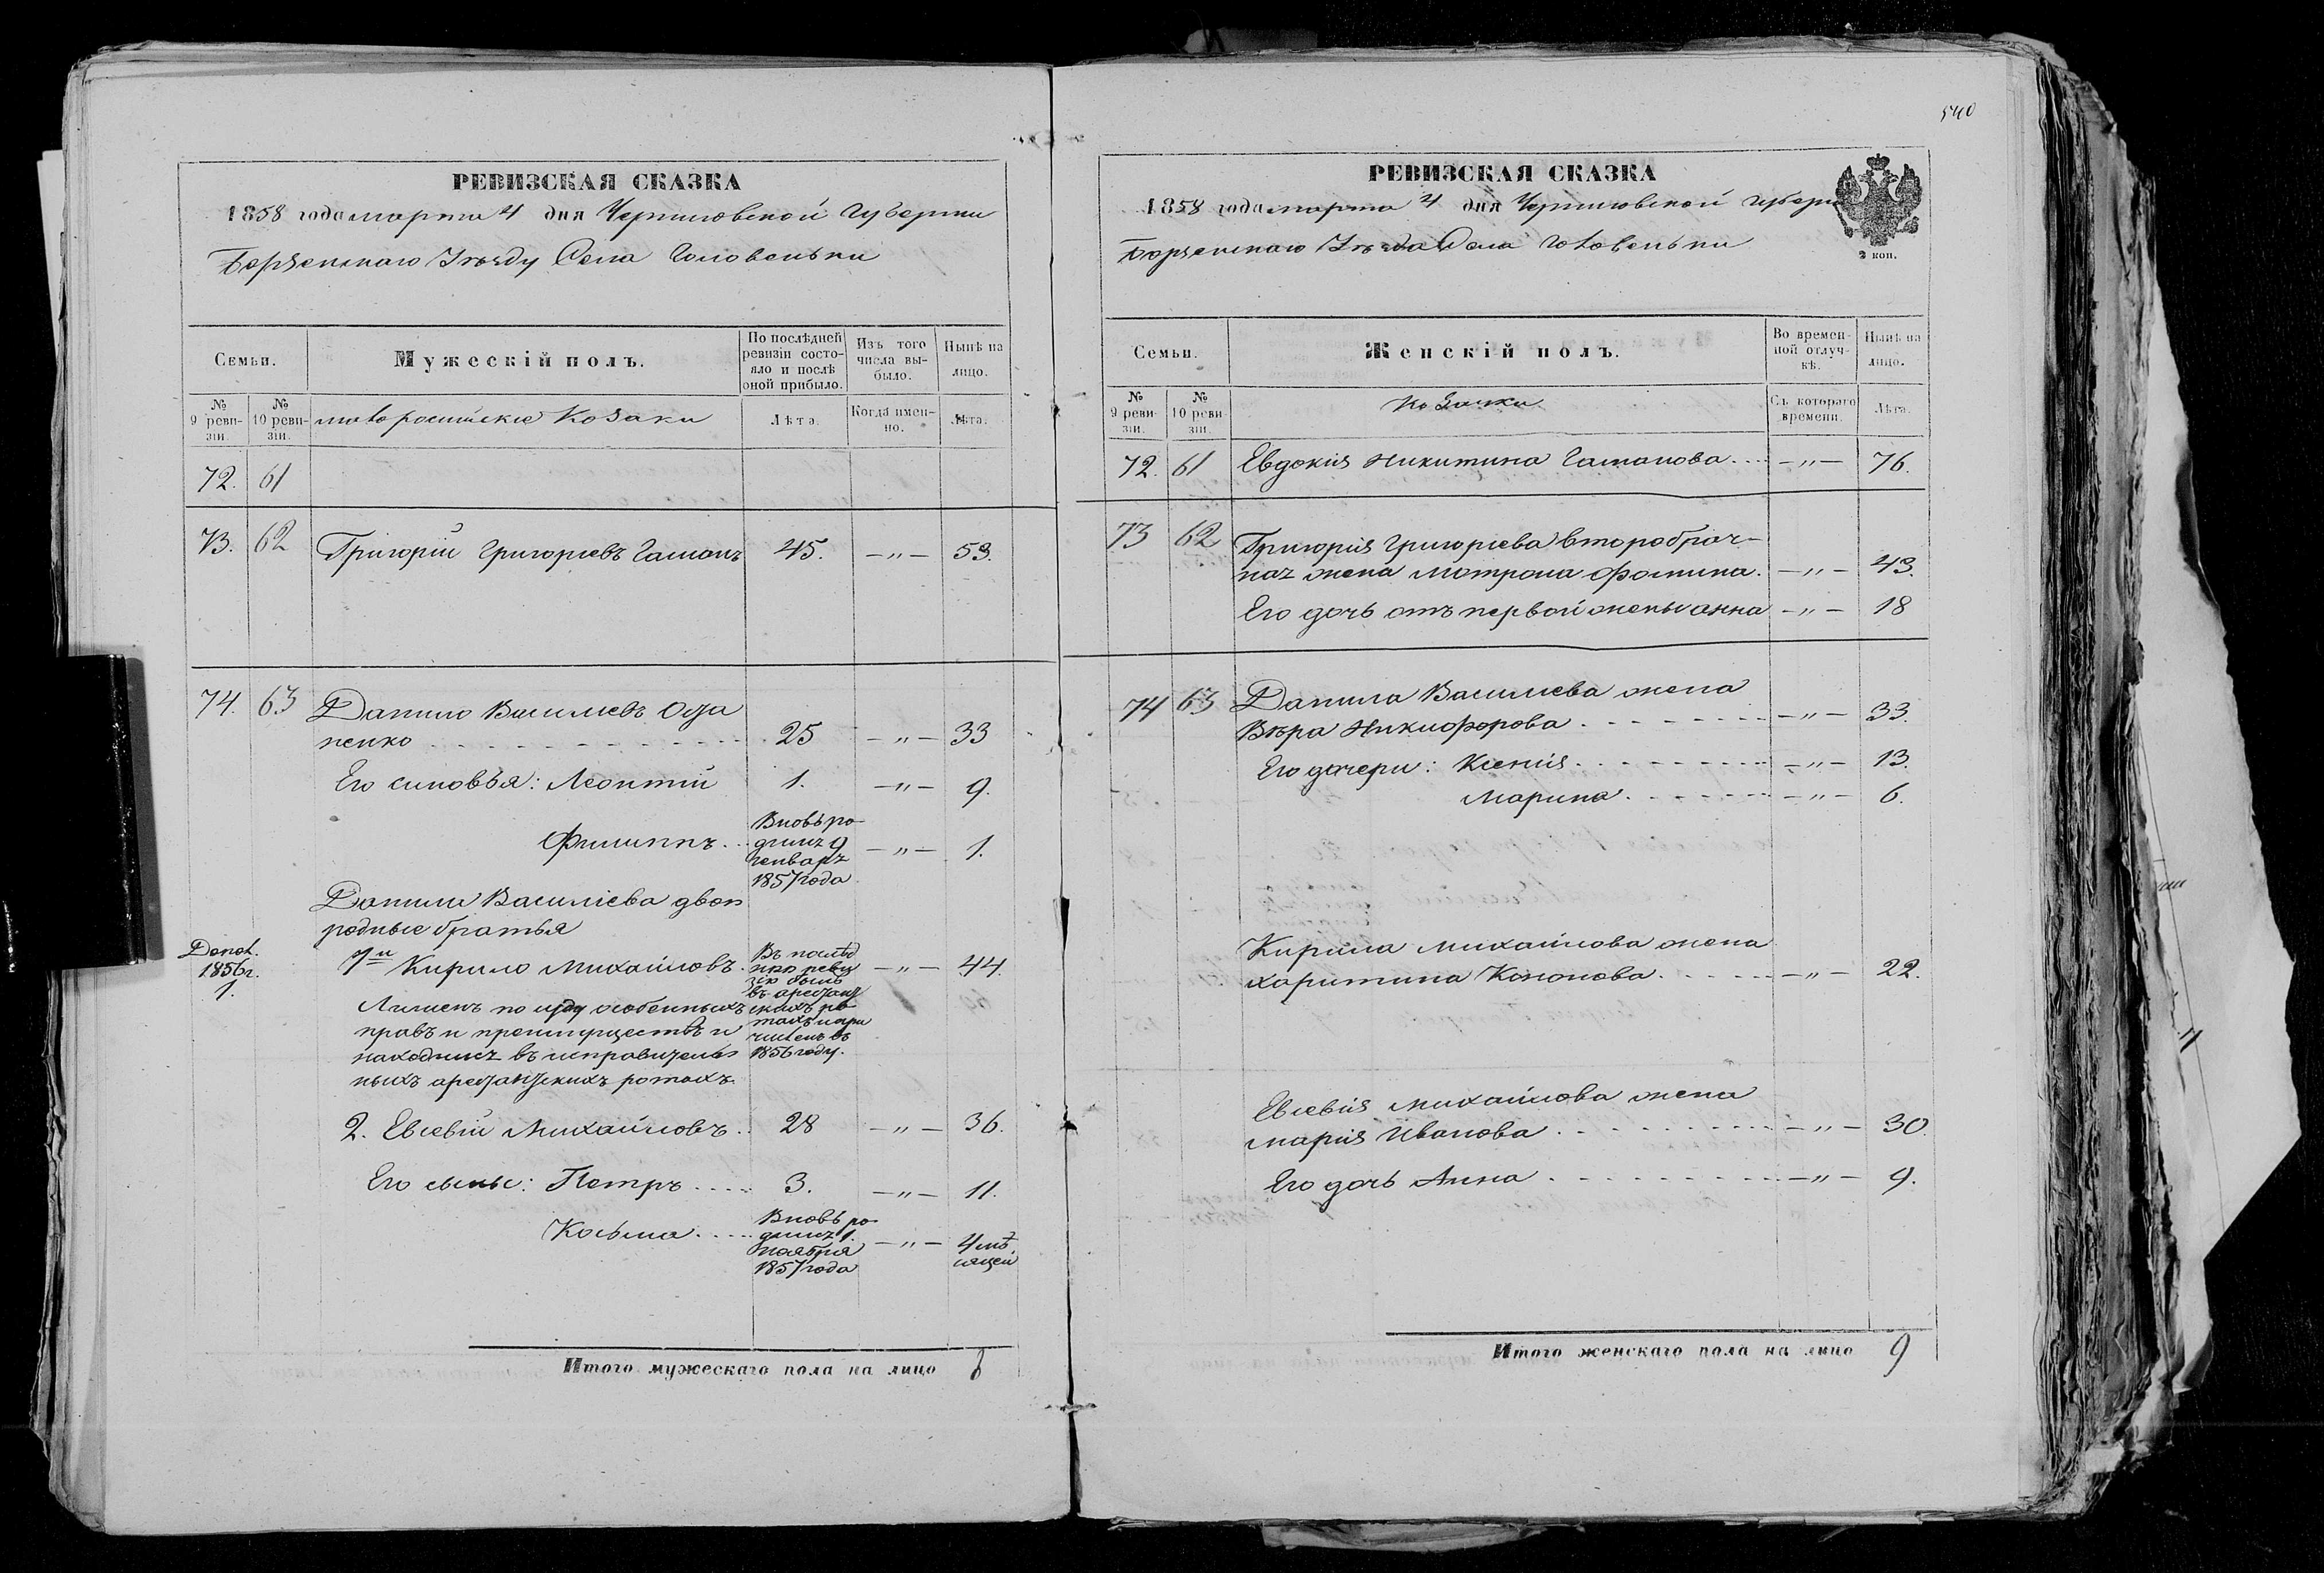 РЕВИЗСКАЯ СКАЗКА
1858 года марта 4 дня Черниговской губернии
Борзенскаго Уѣзду Села Головеньки
Семьи.
Мужескій полъ.
По послѣдней ревизіи состояло и послѣ оной прибыло.
Изъ того числа выбыло.
Нынѣ на лицо.
№ 9 ревизіи.
№ 10 ревизіи.
малоросийскіе Козаки
Лѣта.
Когда именно.
Лѣта.
72. 61
73. 62 Григорій Григорьевъ Гамонъ 45. —"— 53.
74. 63 Данило Василиевъ
ненко 25 —"— 33
Его синовья: Леонтій 1. —"— 9.
Филиппъ. Вновь родился 9 генваря 1857 года —"— 1.
Данила Василіева двою
родные братья
1856 г.
1.
1й Кирило Михайловъ. Въ послѣднюю ревизію былъ въ арестанскихъ ротахъ и причисленъ въ 1856 году. —"— 44.
Лишенъ по суду особенныхъ
правъ и преимуществъ и
находился въ исправитель
ныхъ арестанскихъ ротахъ.
2. Евсевій Михайловъ 28 —"— 36.
Его сыны: Петръ 3. —"— 11.
Козьма Вновь родился 1. ноября 1857 года —"— 4 мѣсяцей
Итого мужескаго пола на лицо 8
540
РЕВИЗСКАЯ СКАЗКА
1858 года марта 4 дня Черниговской губерн
Борзенскаго Уѣзда Села Головеньки
2 коп.
Семьи.
Женскій полъ.
Во временной отлучкѣ.
Нынѣ на лицо.
№ 9 ревизіи.
№ 10 ревизіи.
Козачки
Съ котораго времени.
Лѣта.
72. 61 Евдокія Никитина Гамонова —"— 76.
73 62 Григорія Григорьева второбрач-
ная жена Мотрона Фомина. —"— 43.
Его дочь отъ первой жены Анна —"— 18
74 63 Данила Василиева жена
Вѣра Никифорова —"— 33.
Его дочери: Ксенія —"— 13.
Марина —"— 6.
Кирила Михайлова жена
Харитина Кононова —"— 22.
Евсевія Михайлова жена
Марія Иванова —"— 30.
Его дочь Анна —"— 9.
Итого женскаго пола на лицо 9